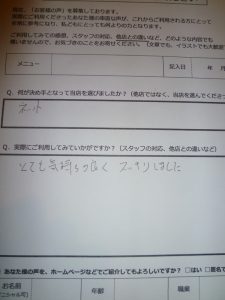 現在、「お客様の声」を募集しております。
実際にご利用くださったあなた様の率直な声が、これからご利用される方にとって
非常に参考になり、私どもにとっても何よりの力となります。
ご利用してみての感想、スタッフの対応、他店との違いなど、どのような内容でも
構いませんので、お気づきのことをお寄せください。「文章でも、イラストでも大歓迎
メニュー
記入日
年
月
Q. 何が決め手となって当店を選びましたか？（他店ではなく、当店を選んでくださっ
ネット
Q. 実際にご利用してみていかがですか？（スタッフの対応、他店との違いなど）
とても気持ち良く スッキリしました
あなた様の声を、ホームページなどでご紹介してもよろしいですか？ □はい □匿名で
お名前
年齢
職業
ニシャル可)